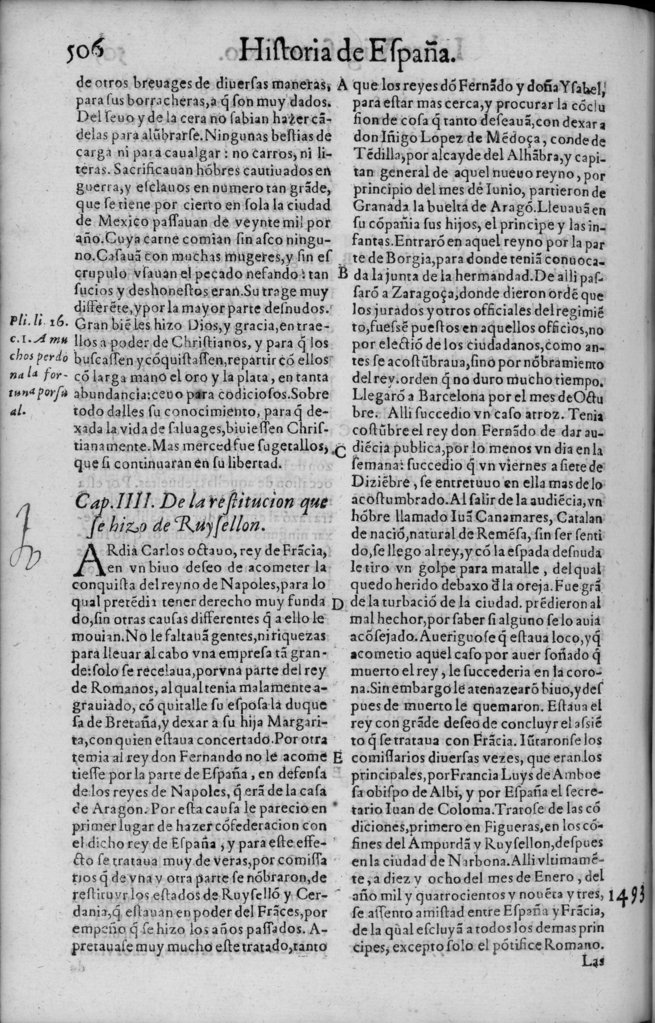 506 Historia de España.
de otros breuages de diuersas maneras,
para sus borracheras, a q̃ son muy dados.
Del seuo y de la cera no sabian hazer cã-
delas para alũbrarse. Ningunas bestias de
carga ni para caualgar: no carros, ni li-
teras. Sacrificauan hõbres cautiuados en
guerra, y esclauos en numero tan grãde,
que se tiene por cierto en sola la ciudad
de Mexico passauan de veynte mil por
año. Cuya carne comian sin asco ningu-
no. Casauã con muchas mugeres, y sin es
crupulo vsauan el pecado nefando: tan
sucios y deshonestos eran. Su trage muy
differẽte, y por la mayor parte desnudos.
Gran biẽ les hizo Dios, y gracia, en trae-
llos a poder de Christianos, y para q̃ los
buscassen y cõquistassen, repartir cõ ellos
cõ larga mano el oro y la plata, en tanta
abundancia: ceuo para codiciosos. Sobre
todo dalles su conocimiento, para q̃ de-
xada la vida de saluages, biuiessen Chris-
tianamente. Mas merced fue sugetallos,
que si continuaran en su libertad.
Pli. li. 16.
c. 1. A mu
chos perdo
na la for-
tuna por su
al.
Cap. IIII. De la restitucion que
se hizo de Ruysellon.
ARdia Carlos octauo, rey de Frãcia,
en vn biuo deseo de acometer la
conquista del reyno de Napoles, para lo
qual pretẽdia tener derecho muy funda
do, sin otras causas differentes q̃ a ello le
mouian. No le faltauã gentes, ni riquezas
para lleuar al cabo vna empresa tã gran-
de: solo se recelaua, por vna parte del rey
de Romanos, al qual tenia malamente a-
grauiado, cõ quitalle su esposa la duque
sa de Bretaña, y dexar a su hija Margari-
ta, con quien estaua concertado. Por otra
temia al rey don Fernando no le acome
tiesse por la parte de España, en defensa
de los reyes de Napoles, q̃ erã de la casa
de Aragon. Por esta causa le parecio en
primer lugar de hazer cõfederacion con
el dicho rey de España, y para este effe-
cto se trataua muy de veras, por comissa
rios q̃ de vna y otra parte se nõbraron, de
restituyr los estados de Ruysellõ y Cer-
dania, q̃ estauan en poder del Frãces, por
empeño q̃ se hizo los años passados. A-
pretauase muy mucho este tratado, tanto
A
B
C
D
E
que los reyes dõ Fernãdo y doña Ysabel,
para estar mas cerca, y procurar la cõclu
sion de cosa q̃ tanto deseauã, con dexar a
don Iñigo Lopez de Mẽdoça, conde de
Tẽdilla, por alcayde del Alhãbra, y capi-
tan general de aquel nueuo reyno, por
principio del mes dé Iunio, partieron de
Granada la buelta de Aragõ. Lleuauã en
su cõpañia sus hijos, el principe y las in-
fantas. Entrarõ en aquel reyno por la par
te de Borgia, para donde teniã conuoca-
da la junta de la hermandad. De alli pas-
sarõ a Zaragoça, donde dieron ordẽ que
los jurados y otros officiales del regimiẽ
to, fuessẽ puestos en aquellos officios, no
por electiõ de los ciudadanos, como an-
tes se acostũbraua, sino por nõbramiento
del rey. orden q̃ no duro mucho tiempo.
Llegarõ a Barcelona por el mes de Octu
bre. Alli succedio vn caso atroz. Tenia
costũbre el rey don Fernãdo de dar au-
diẽcia publica, por lo menos vn dia en la
semana: succedio q̃ vn viernes a siete de
Diziẽbre, se entretuuo en ella mas de lo
acostumbrado. Al salir de la audiẽcia, vn
hõbre llamado Iuã Canamares, Catalan
de naciõ, natural de Remẽsa, sin ser senti
do, se llego al rey, y cõ la espada desnuda
le tiro vn golpe para matalle, del qual
quedo herido debaxo đ la oreja. Fue grã
de la turbaciõ de la ciudad. prẽdieron al
mal hechor, por saber si alguno se lo auia
acõsejado. Aueriguose q̃ estaua loco, y q̃
acometio aquel caso por auer soñado q̃
muerto el rey, le succederia en la coro-
na. Sin embargo le atenazearõ biuo, y des
pues de muerto le quemaron. Estaua el
rey con grãde deseo de concluyr el assiẽ
to q̃ se trataua con Frãcia. Iũtaronse los
comissarios diuersas vezes, que eran los
principales, por Francia Luys de Amboe
sa obispo de Albi, y por España el secre-
tario Iuan de Coloma. Tratose de las cõ
diciones, primero en Figueras, en los cõ-
fines del Ampurdã y Ruysellon, despues
en la ciudad de Narbona. Alli vltimamẽ-
te, a diez y ocho del mes de Enero, del
año mil y quatrocientos y nouẽta y tres,
se assento amistad entre España y Frãcia,
de la qual escluyã a todos los demas prin
cipes, excepto solo el põtifice Romano.
1493
Las